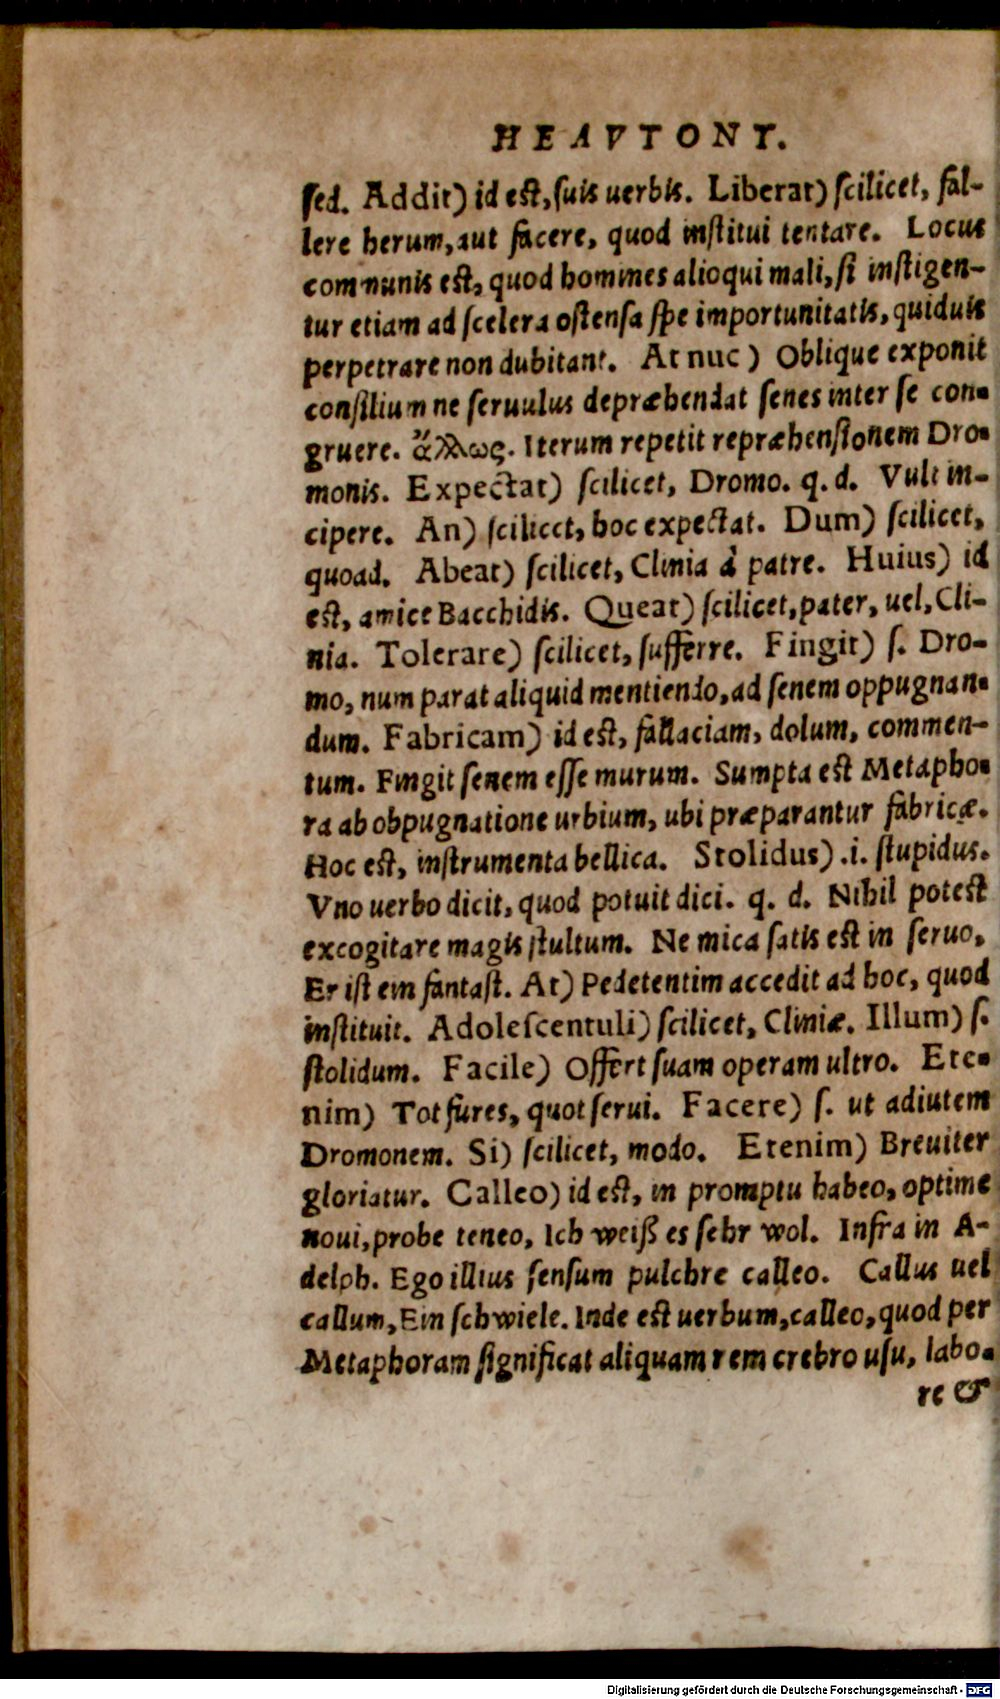 HEAVTONT.
sed. Addit) id est, suis uerbis. Liberat) scilicet, fal-
lere herum, aut facere, quod institui tentare. Locus
communis est, quod homines alioqui mali, si instigen-
tur etiam ad scelera ostensa spe importunitatis, quiduis
perpetrare non dubitant. At nuc) Oblique exponit
consilium ne seruulus depræhendat senes inter se con-
gruere. ἄλλως. Iterum repetit repræhensionem Dro-
monis. Expectat) scilicet, Dromo. q. d. Vult in-
cipere. An) scilicet, hoc expectat. Dum) scilicet,
quoad. Abeat) scilicet, Clinia à patre. Huius) id
est, amicę Bacchidis. Queat) scilicet, pater, uel, Cli-
nia. Tolerare) scilicet, sufferre. Fingit) s. Dro-
mo, num parat aliquid mentiendo, ad senem oppugnan-
dum. Fabricam) id est, fallaciam, dolum, commen-
tum. Fingit senem esse murum. Sumpta est Metapho-
ra ab obpugnatione urbium, ubi præparantur fabricæ.
Hoc est, instrumenta bellica. Stolidus) .i. stupidus.
Vno uerbo dicit, quod potuit dici. q. d. Nihil potest
excogitare magis stultum. Ne mica satis est in seruo,
Er ist ein fantast. At) Pedetentim accedit ad hoc, quod
instituit. Adolescentuli) scilicet, Cliniæ. Illum) s.
stolidum. Facile) Offert suam operam ultro. Ete-
nim) Tot fures, quot serui. Facere) s. ut adiutem
Dromonem. Si) scilicet, modo. Etenim) Breuiter
gloriatur. Calleo) id est, in promptu habeo, optime
noui, probe teneo, Ich weiß es sehr wol. Infra in A-
delph. Ego illius sensum pulchre calleo. Callus uel
callum, Ein schwiele. Inde est uerbum, calleo, quod per
Metaphoram significat aliquam rem crebro usu, labo-
re &
Digitalisierung gefördert durch die Deutsche Forschungsgemeinschaft - DFG